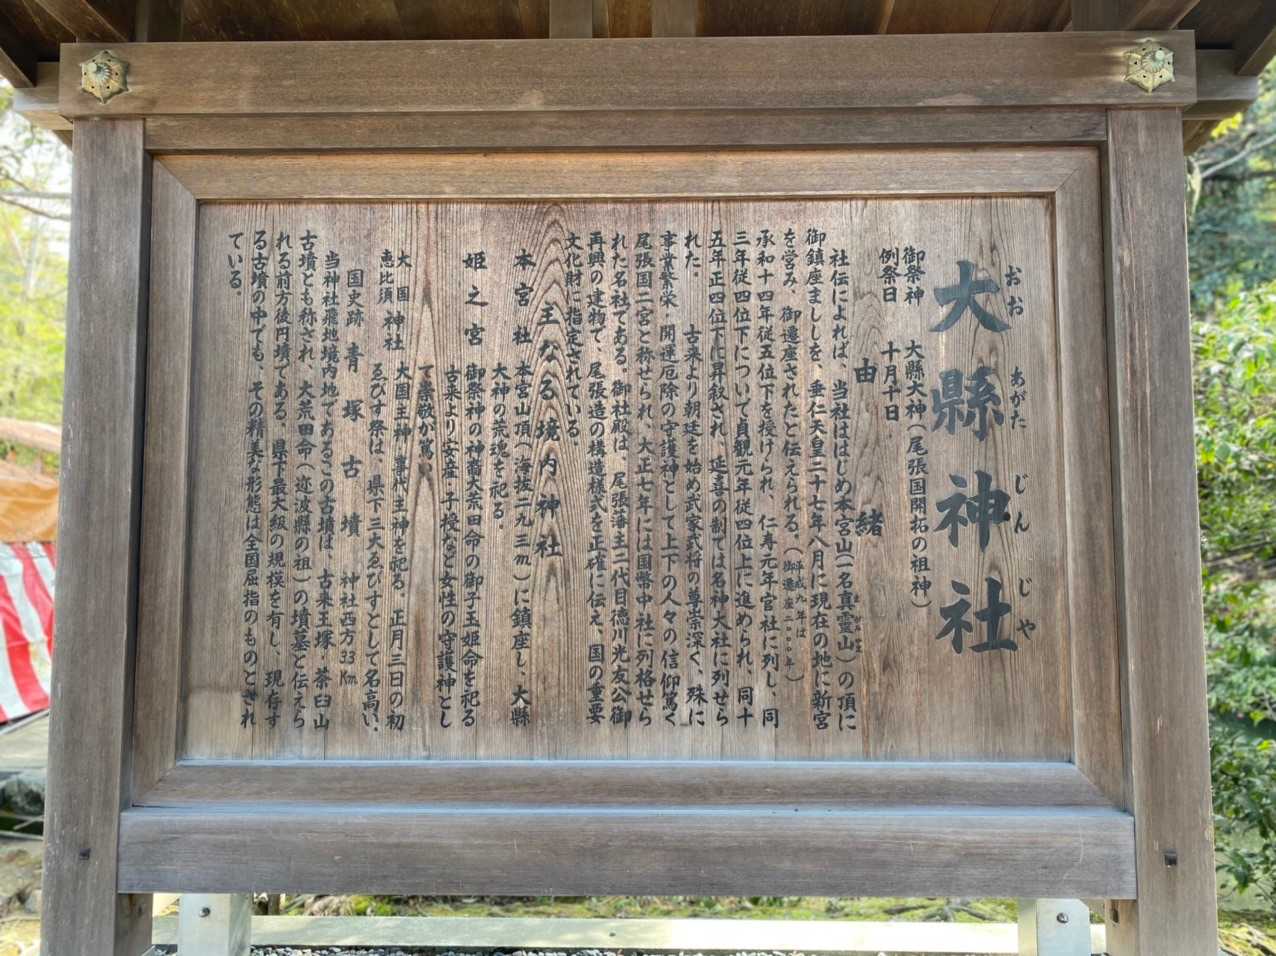 大縣神社
おお あがた じん じゃ
御祭神 大縣大神(尾張国開拓の祖神)
例祭日 十月十日
由緒
社伝によれば、当社ははじめ本宮山(一名真霊山)の頂に
御鎮座ましましを、垂仁天皇二十七年八月に現在の地に新宮
を営み、御遷座されたと伝えられる。(平成九年は御遷座二〇〇〇年)
承和十四年従五位下を授けられ、仁寿元年官社に列し、同
三年従四位下について貞観元年従四位上に進められ、同十
五年正四位下に昇叙され、延喜の制では名神大社に列せら
れた。 古来より朝廷を始め武家武将の尊崇深く、殊に
事業繁栄・開運厄除の守護神として上下の人々の信仰篤く
尾張国二宮と称せられ、大正七年には国幣中社に列格せら
れた名社である。御社殿は、尾張藩主二代目徳川光友公御
再興の建物で、尾張造の構造様式を正確に伝え、国の重要
文化財に指定されている。
主なる境内神社
本宮社 本宮山頂(海抜二九三m)に鎮座し、大縣
大神の荒魂を祀る。
姫之宮 御祭神の裔大荒田命の御子玉姫命を祀る
古来より安産・子授など女性の守護神とし
て崇敬が篤い。
大国恵比須神社 大国主神、事代主神を祀る。正月三日の初
ゑびす祭は、県下三大ゑびすとして名高い。
国史跡 青塚古墳 神社西方3.3Km
当神社飛地境内地であるこの古墳は、古来王塚・茶臼山
古墳とも称され、大荒田命(迩波縣の祖)の墳墓と伝えら
れる前方後円墳である。県下最大級の規模を有し、現存す
る古墳の中でも、その精美な形態は全国屈指のものとされ
ている。